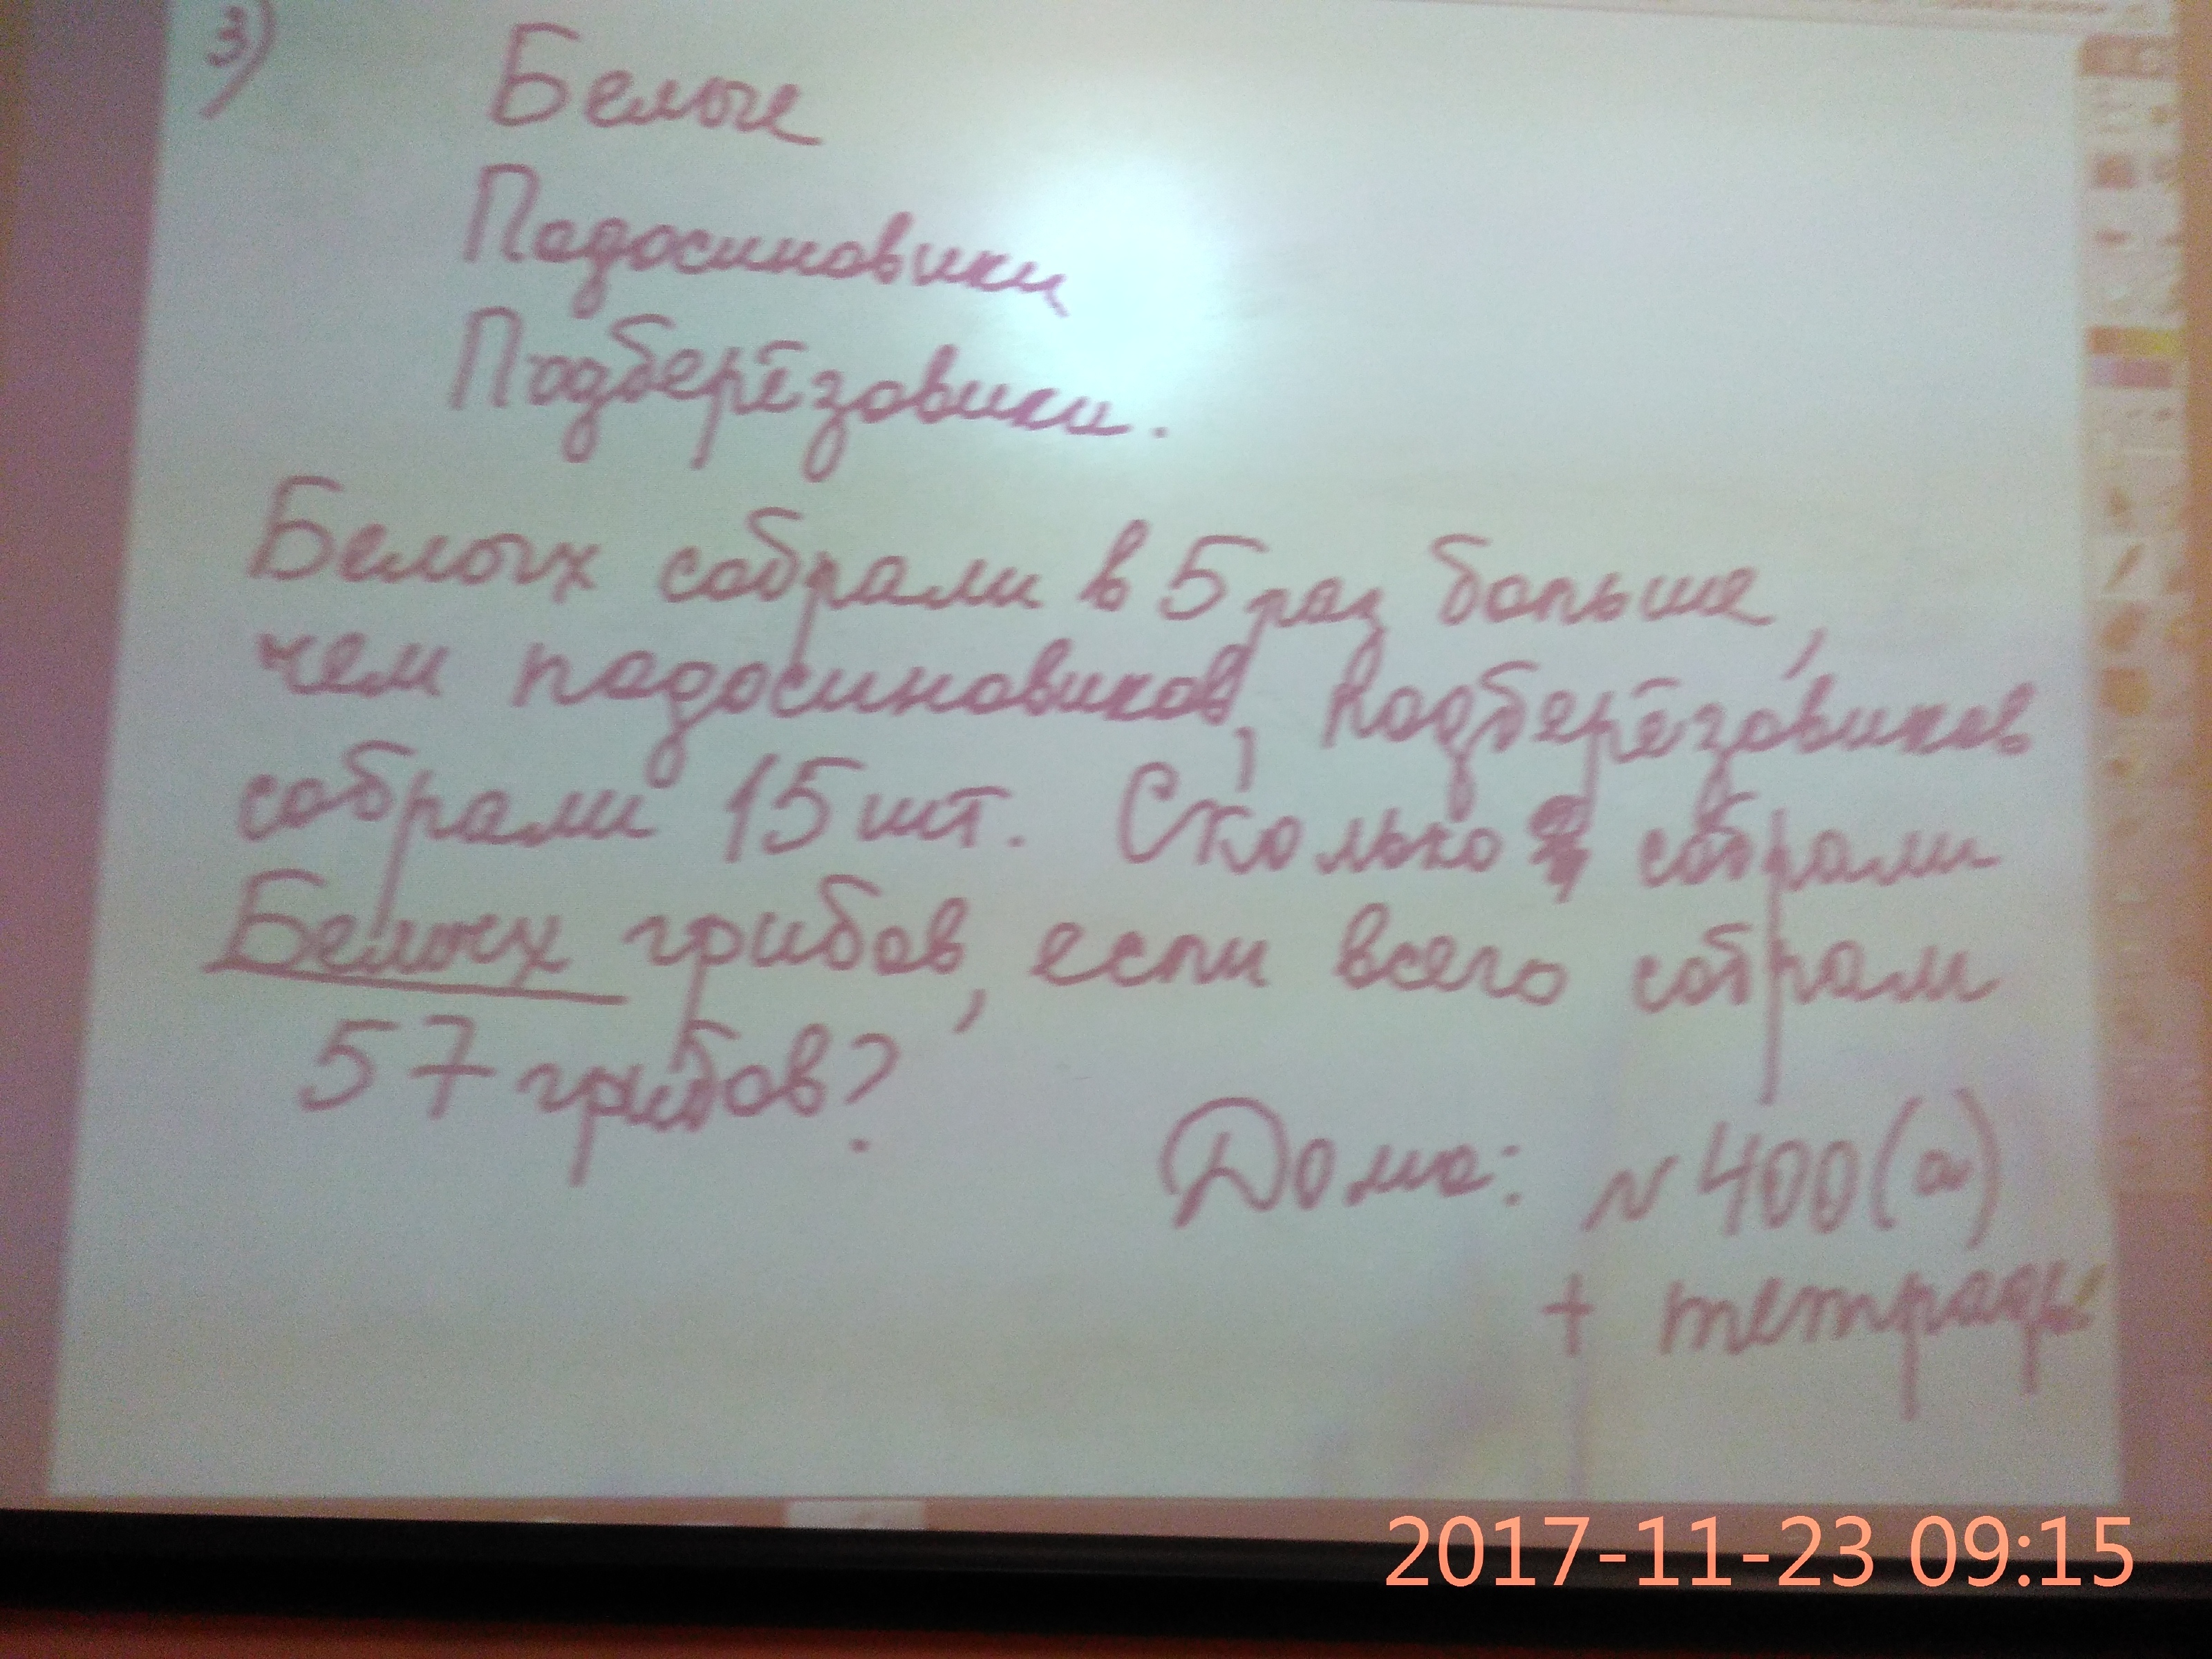 3)
Белые
Подосиновики
Подберёзовики.
Белых собрали в 5 раз больше,
чем подосиновиков, подберёзовиков
собрали 15 шт. Сколько собрали
Белых грибов, если всего собрали
57 грибов?
Дома: N 400(а)
+ тетрадь
2017-11-23 09:15